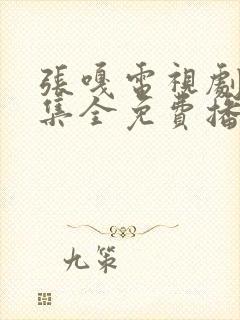 張嘎電視劇
集全免費播
九策